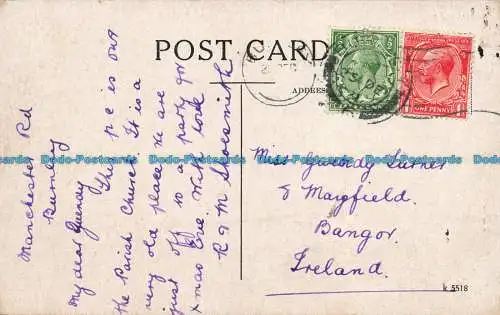 POST CARD
ADDRES
Manchester Rd
Burnley
My dear Guendy
This p c is our
the Parish Church. It is a
very old place. We are
just off to a party for
xmas Eve. With love
R & M Shoesmith
Miss Guendy Turner
8 Mayfield.
Bangor.
Ireland.
ONE PENNY
k 5518
Dodo-Postcards Dodo-Postcards Dodo-Postcards Dodo-Postcards Dodo-Postcards